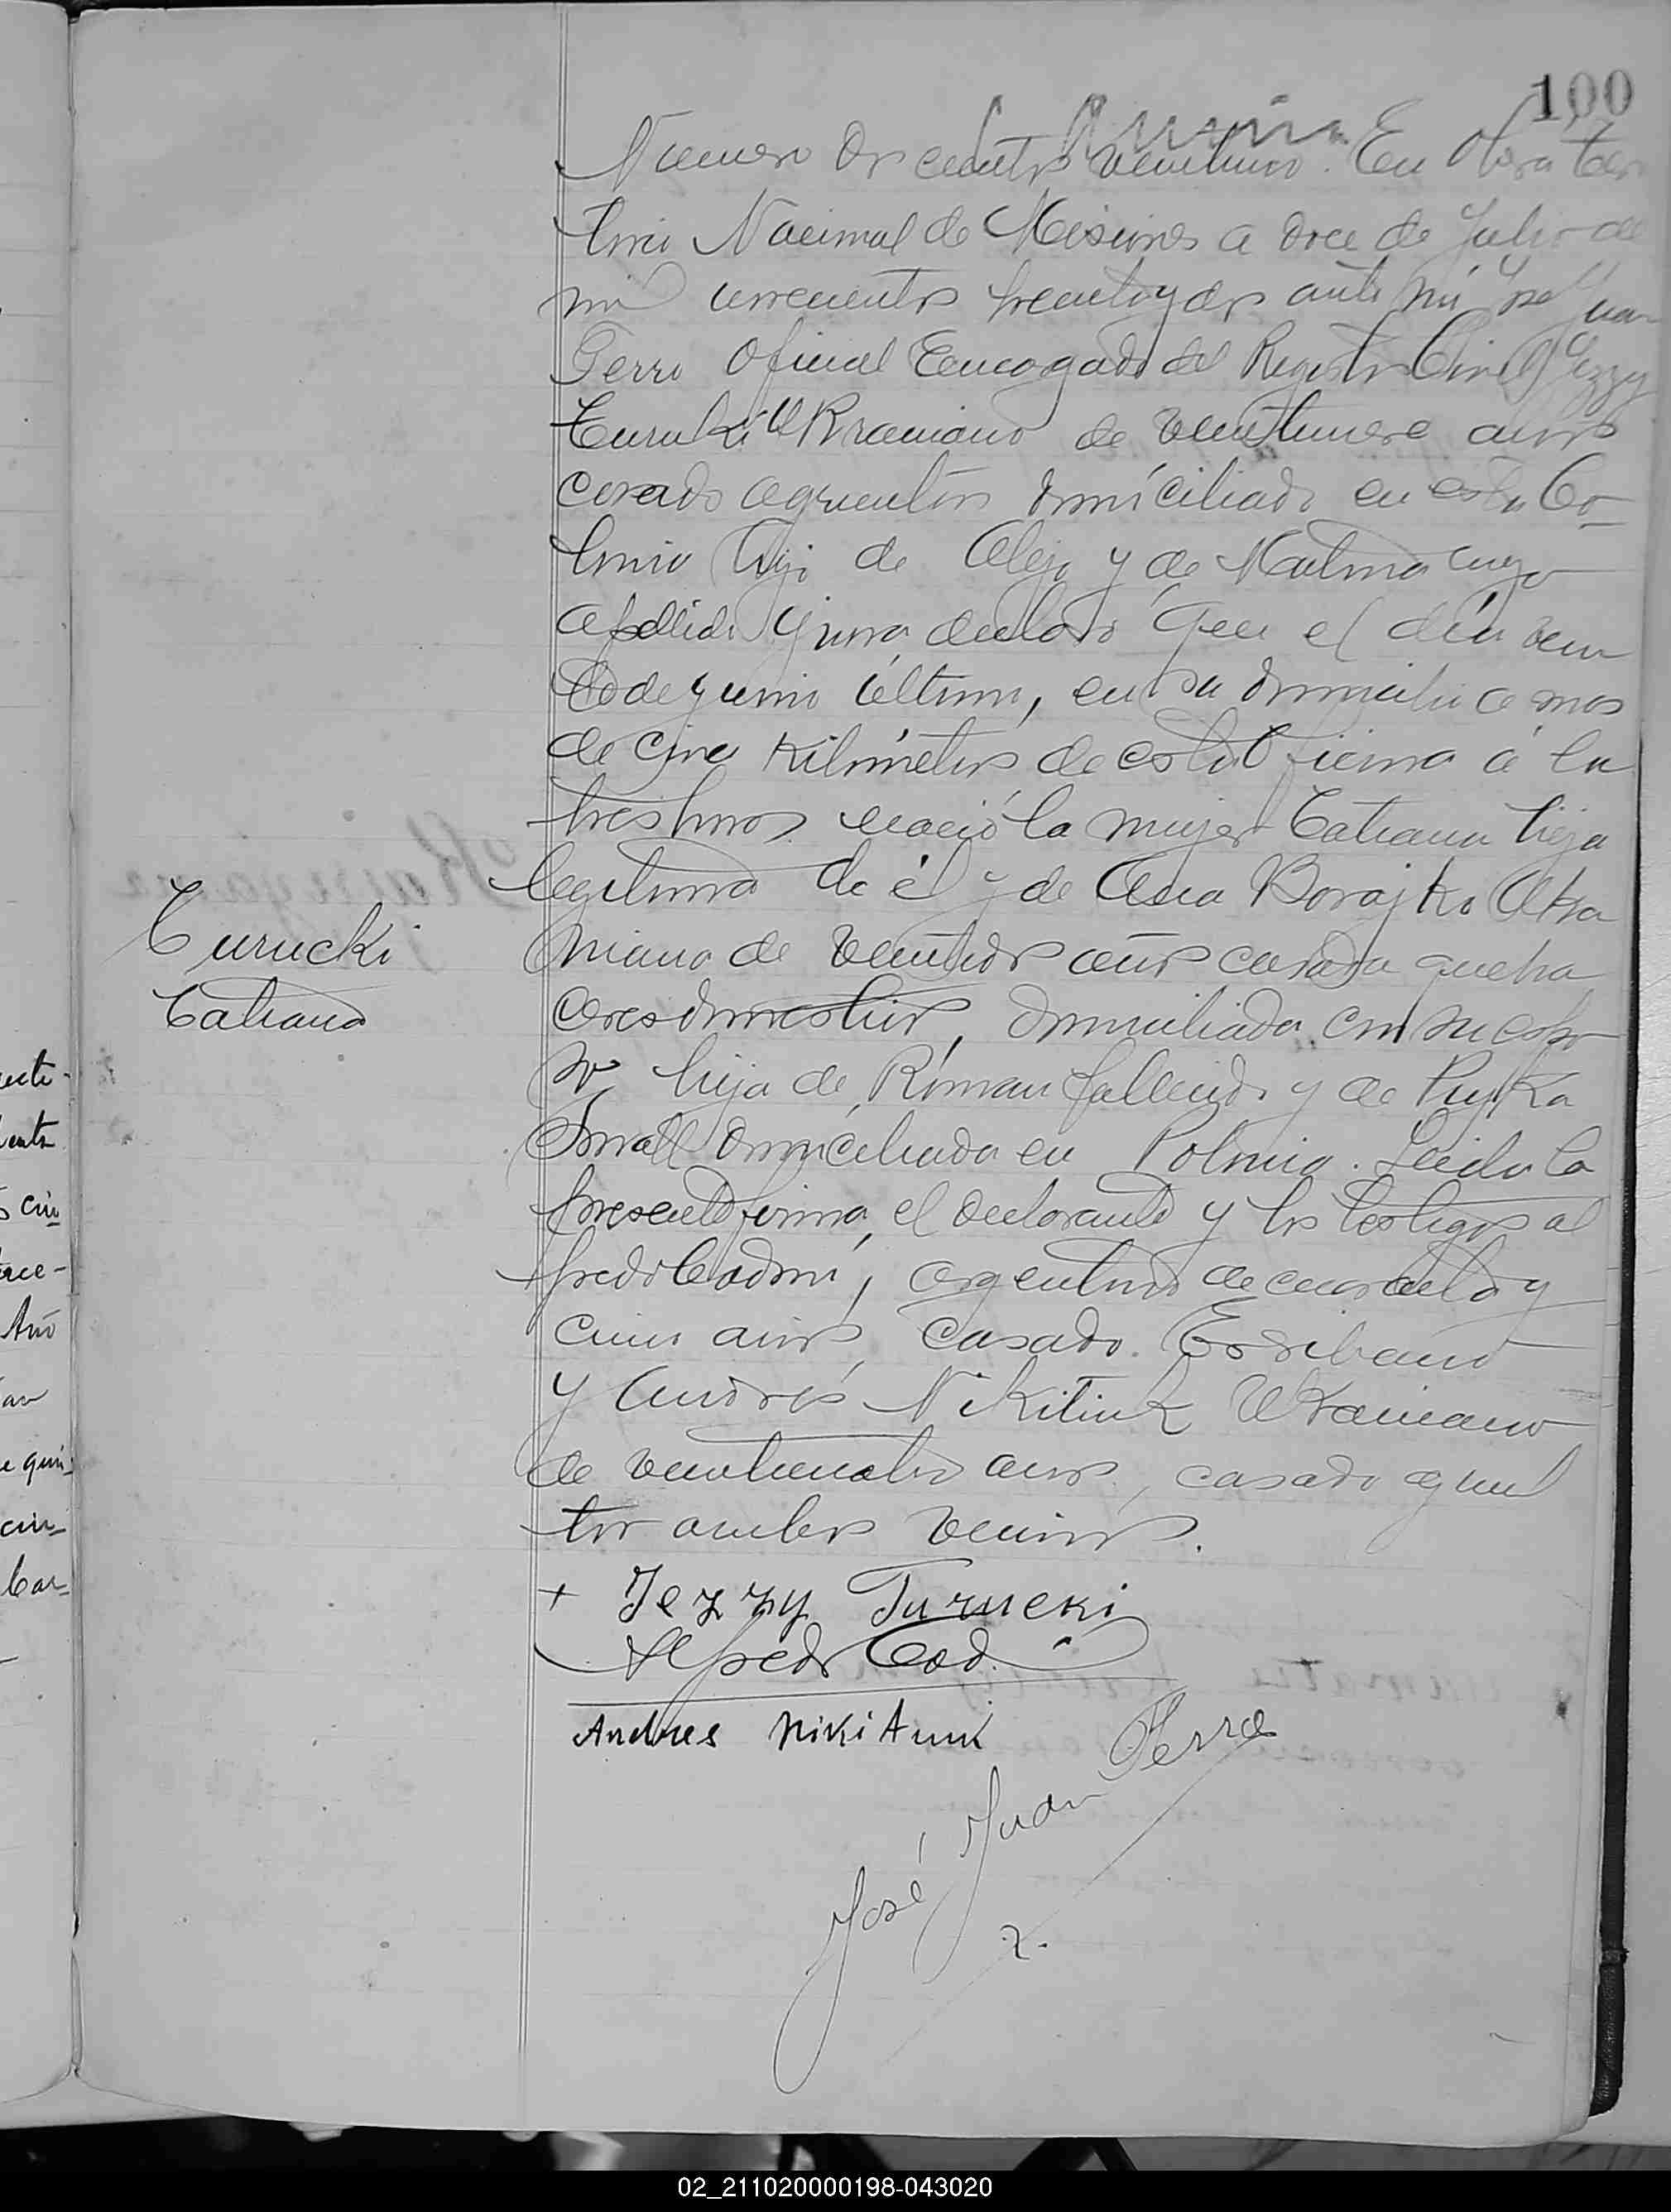 100
Numero Doscientos veintiuno. En Obera Ter
ritorio Nacional de Misiones a doce de Julio de
mil novecientos treinta y dos ante mi José Juan
Ferre Oficial Encargado del Registro Civil Jezzy
Turucki Ukraniano de veintinueve años
casado agricultor domiciliado en esta Co-
lonia hijo de Alejo y de Matrona cuyo
apellido ignora declaró que el dia vein
te de junio último, en su domicilio a mas
de cinco kilómetros de esta Oficina á las
tres horas nació la mujer Catiana hija
legitima de él y de Ana Borajko Ukra
niana de veintidos años casada queha
ceres domesticos, domiciliada con su espo
so, hija de Roman fallecido y de
domiciliada en Polonia. Leida la
presente firma, el declarante y los testigos Al
fredo Codoni, argentino de cuarenta y
cinco años, casado. Escribano
y Andrés Nikitiuk Ukraniano
de veinticuatro años, casado agricul
tor ambos vecinos.
Turucki
Catiana
+ Jezzy Turucki
Alfredo Cod
Andres Nikitiuk
José Juan Ferre
ecte-
cin
rce-
Año
e quin-
cin-
Car-
02_211020000198-043020